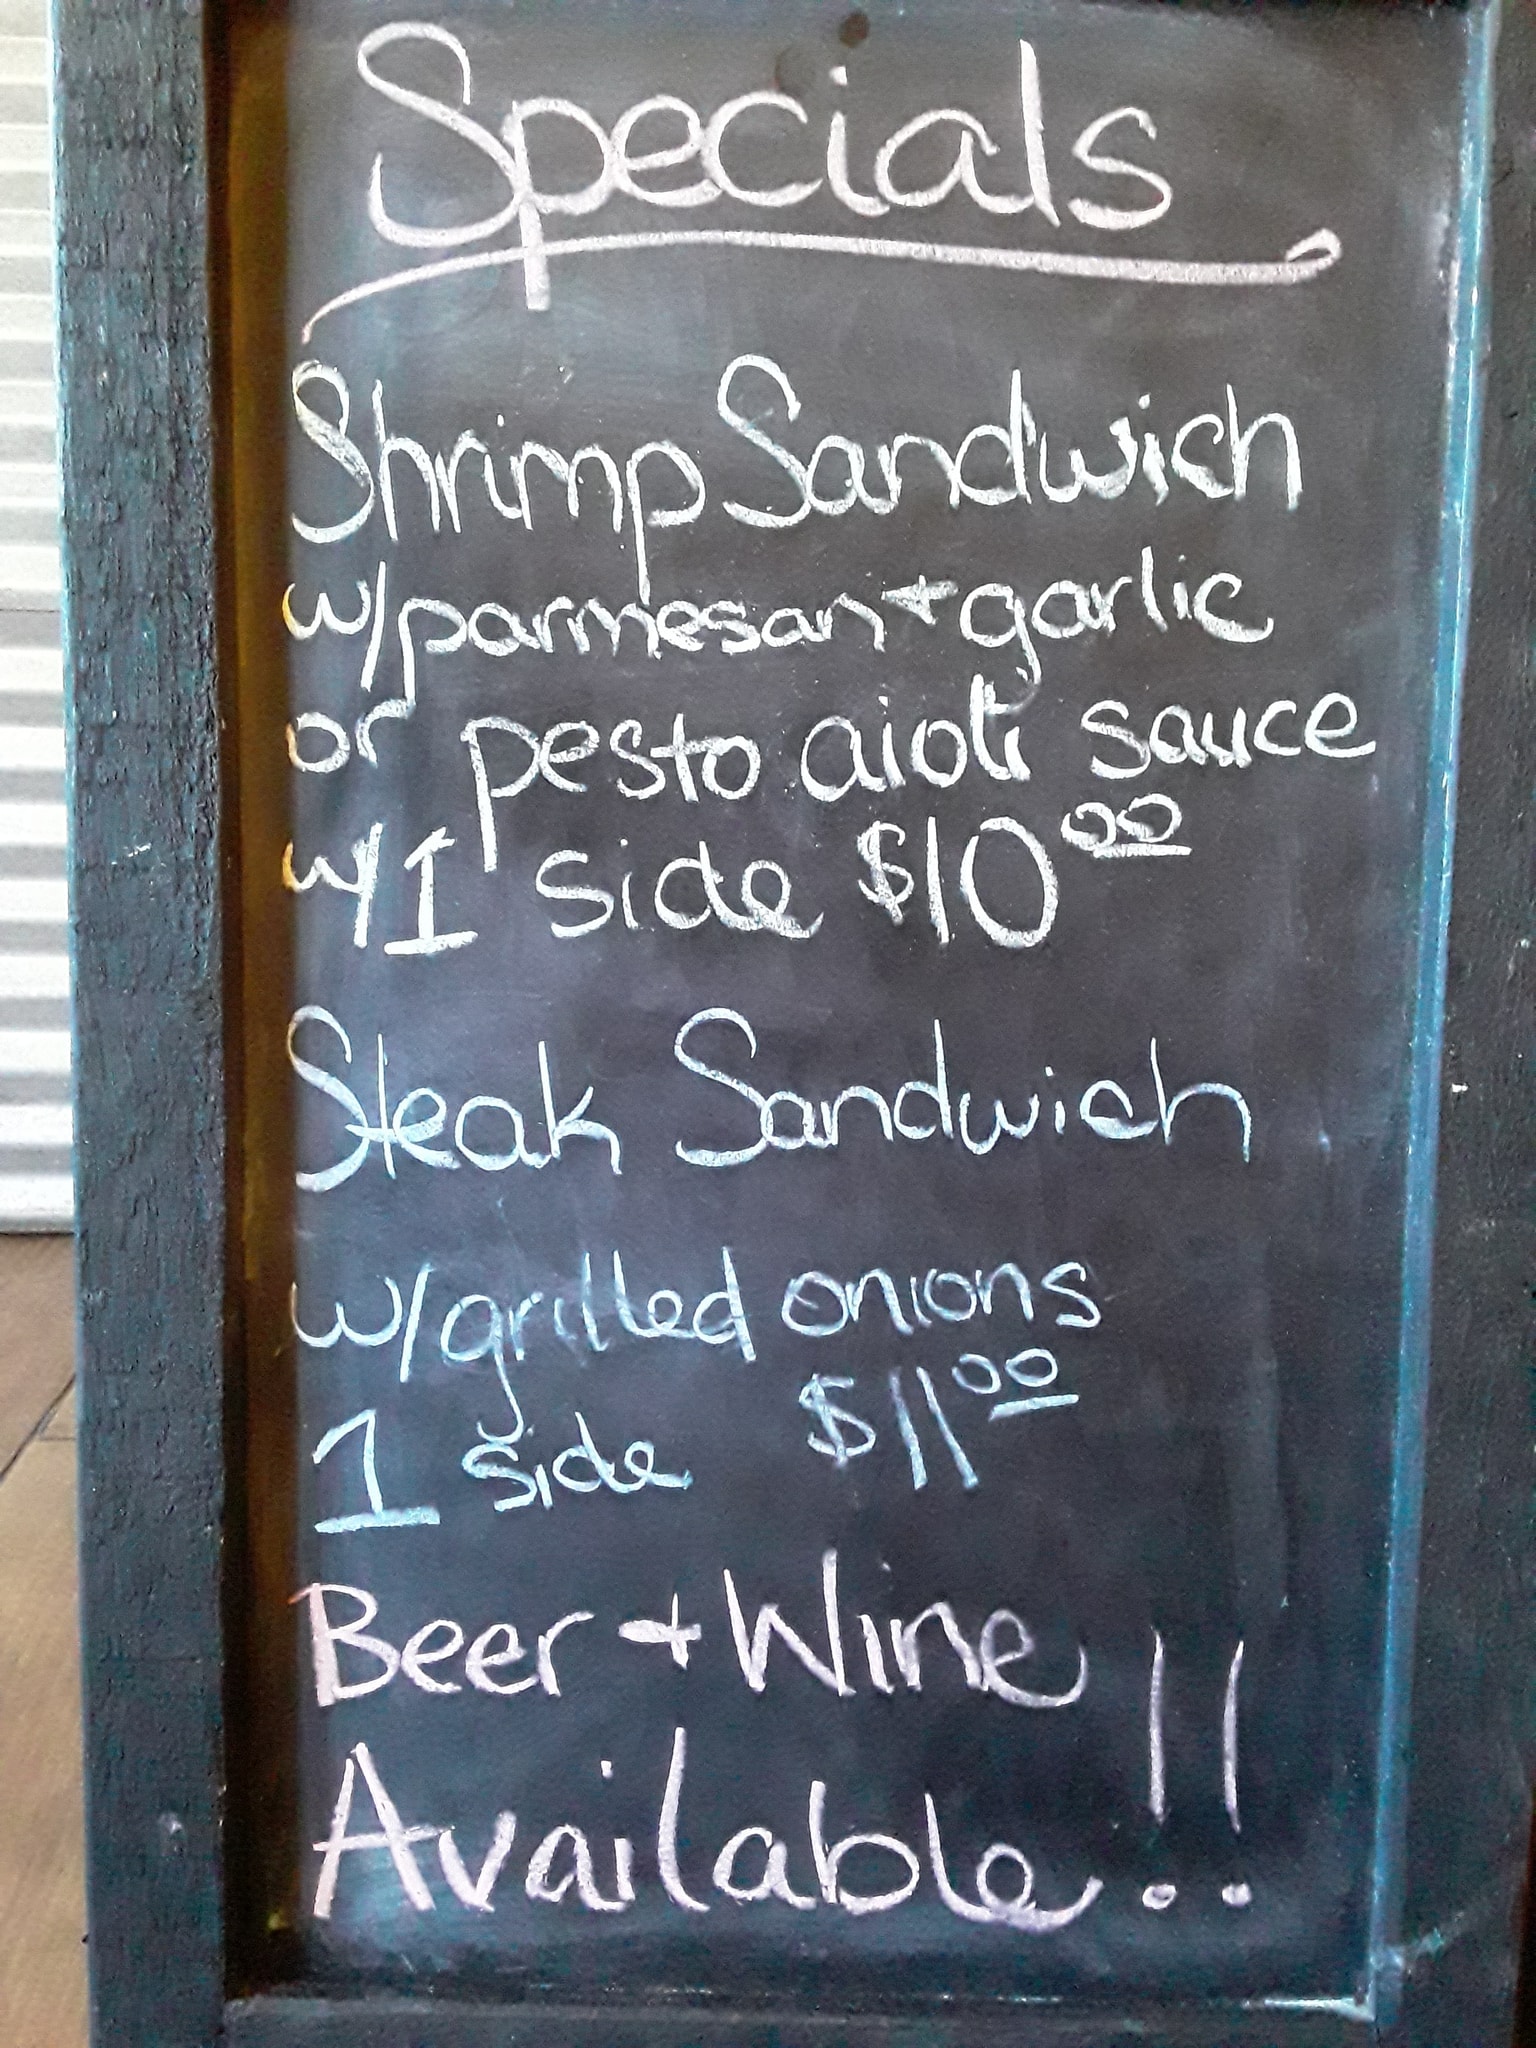 Specials
Shrimp Sandwich
w/parmesan + garlic
or pesto aioli sauce
w/1 side $10.00
Steak Sandwich
w/grilled onions
1 side $11.00
Beer + Wine
Available!!